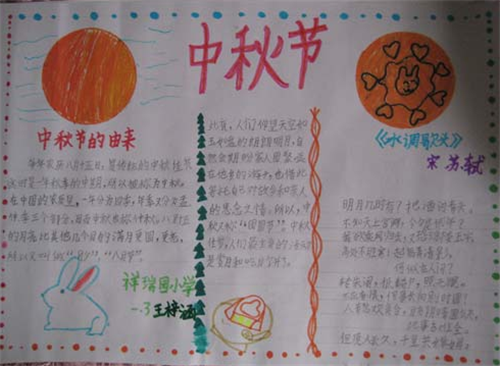 中秋节
中秋节的由来
每年农历八月十五日,是传统的中秋佳节
这时是一年秋季的中期,所以被称为中秋。
在中国的农历里,一年分为四季,每季又分为孟
仲、季三个部分,因而中秋也称仲秋。八月十五
的月亮比其他几个月的满月更圆,更亮,
所以又叫做"月夕","八月节"。
祥瑞园小学
一.3 王梓涵
此夜,人们仰望天空如
玉如盘的朗朗明月,自
然会期盼家人团聚。远
在他乡的游子,也借此
寄托自己对故乡和亲人
的思念之情。所以,中
秋又称"团圆节"。中秋
佳节,人们最主要的活动
是赏月和吃月饼了。
《水调歌头》
宋 苏轼
明月几时有?把酒问青天。
不知天上宫阙,今夕是何年?
我欲乘风归去,又恐琼楼玉宇,
高处不胜寒!起舞弄清影,
何似在人间?
转朱阁,低绮户,照无眠。
不应有恨,何事长向别时圆?
人有悲欢离合,月有阴晴圆缺,
此事古难全。
但愿人长久,千里共婵娟。